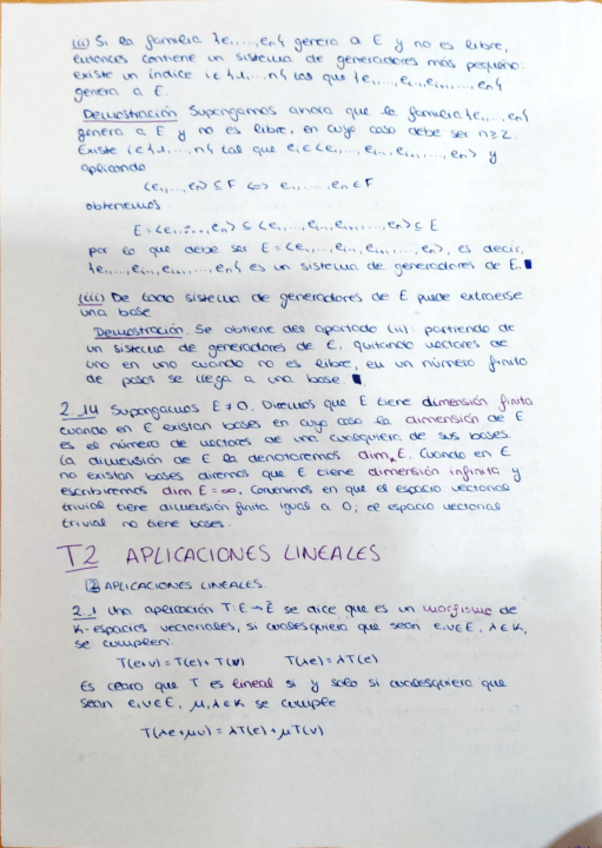 (ii) Si la familia {e₁,...,eₙ} genera a E y no es libre,
entonces contiene un sistema de generadores más pequeño:
existe un índice i∈{1,...,n} tal que {e₁,...,eᵢ₋₁,eᵢ₊₁,...,eₙ}
genera a E.
Demostración Supongamos ahora que la familia {e₁,...,eₙ}
genera a E y no es libre, en cuyo caso debe ser n≥2.
Existe i∈{1,...,n} tal que eᵢ∈<e₁,...,eᵢ₋₁,eᵢ₊₁,...,eₙ> y
aplicando
<e₁,...,eₙ> ⊆ F ⇔ e₁,...,eₙ∈F
obtenemos
E=<e₁,...,eₙ> ⊆ <e₁,...,eᵢ₋₁,eᵢ₊₁,...,eₙ> ⊆ E
por lo que debe ser E=<e₁,...,eᵢ₋₁,eᵢ₊₁,...,eₙ>, es decir,
{e₁,...,eᵢ₋₁,eᵢ₊₁,...,eₙ} es un sistema de generadores de E. ■
(iii) De todo sistema de generadores de E puede extraerse
una base
Demostración. Se obtiene del apartado (ii): partiendo de
un sistema de generadores de E, quitando vectores de
uno en uno cuando no es libre, en un número finito
de pasos se llega a una base. ■
2.14 Supongamos E≠0. Diremos que E tiene dimensión finita
cuando en E existan bases en cuyo caso la dimensión de E
es el número de vectores de una cualquiera de sus bases.
La dimensión de E la denotaremos dimₖE. Cuando en E
no existan bases diremos que E tiene dimensión infinita y
escribiremos dim E=∞. Convenimos en que el espacio vectorial
trivial tiene dimensión finita igual a 0; el espacio vectorial
trivial no tiene bases.
T2 APLICACIONES LINEALES
2 APLICACIONES LINEALES.
2.1 Una aplicación T:E→Ē se dice que es un morfismo de
K-espacios vectoriales, si cualesquiera que sean e,v∈E, λ∈K,
se cumplen:
T(e+v)=T(e)+T(v) T(λe)=λT(e)
Es claro que T es lineal si y solo si cualesquiera que
sean e,v∈E, μ,λ∈K se cumple
T(λe+μv)=λT(e)+μT(v)